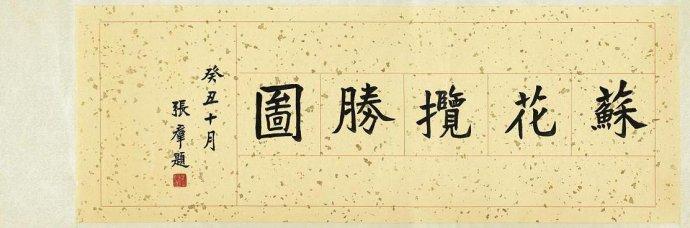 蘇花攬勝圖
癸丑十月
張羣題